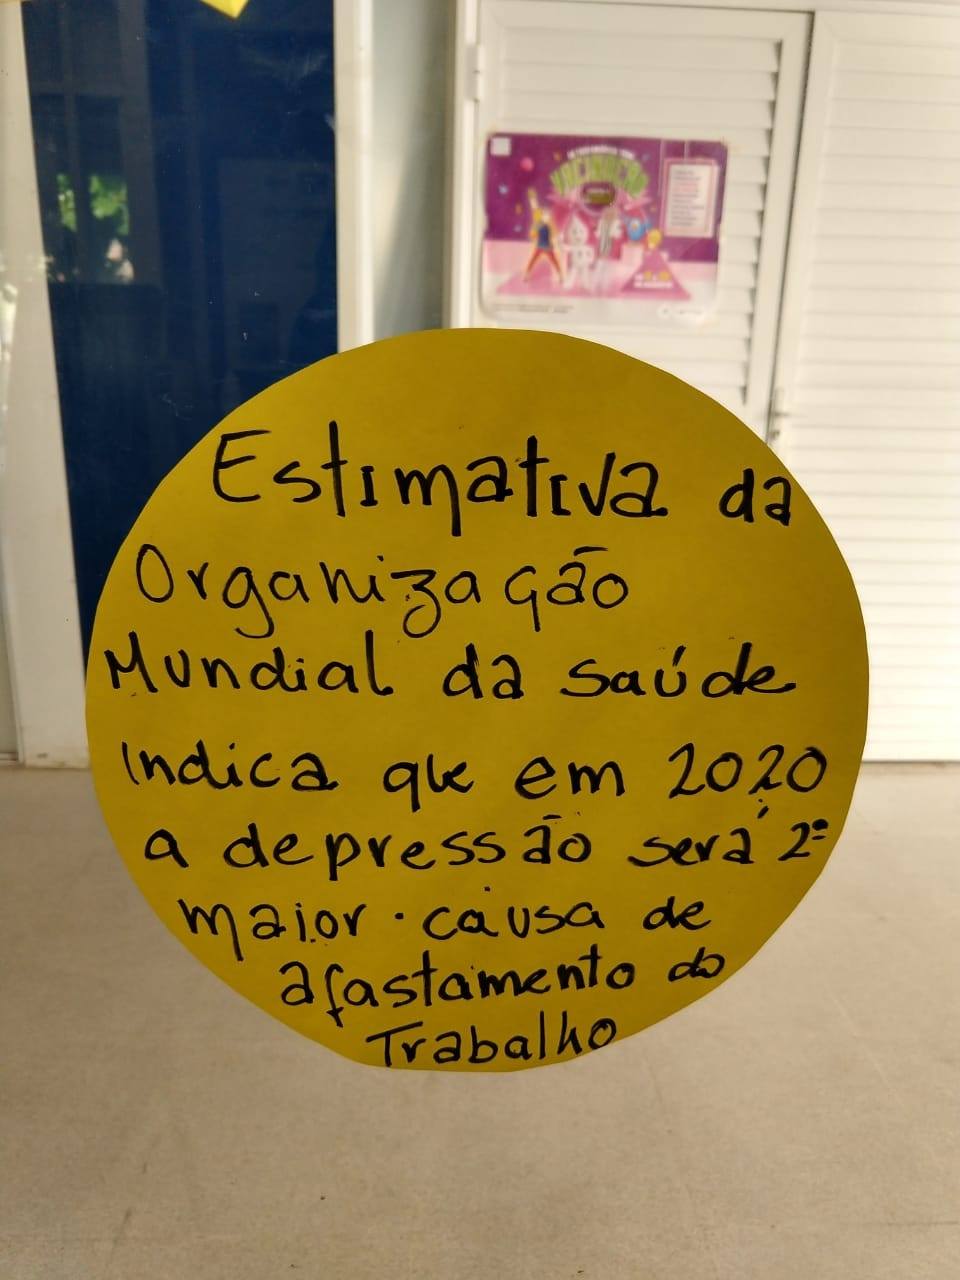 VACINAÇÃO
Estimativa da
Organização
Mundial da saúde
Indica que em 2020
a depressão será 2º
maior causa de
afastamento do
Trabalho